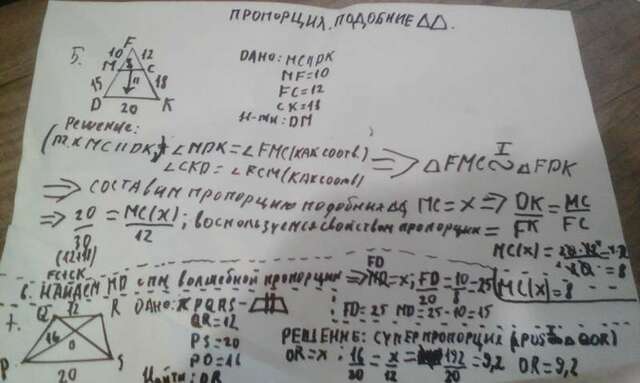 ПРОПОРЦИЯ. ПОДОБНИЕ ΔΔ.
5.
F
10 12
M 8 C
15 18
D 20 K
ДАНО: MC||DK
MF=10
FC=12
CK=18
Н-ти: DM
Решение:
(т.к MC||DK) ∠MDK = ∠FMC (КАК СООТВ)
∠CKD = ∠FCM (КАК СООТВ)
⇒ I ΔFMC ∽ ΔFDK
⇒ СОСТАВИМ ПРОПОРЦИЮ ПОДОБНЫХ ΔΔ MC = X ⇒ DK/FK = MC/FC
⇒ 20/30 = MC(x)/12; ВОСПОЛЬЗУЕМСЯ СВОЙСТВОМ ПРОПОРЦИИ =
(12+18)
FC+CK
MC(x) =
= 8
MC(x) = 8
6. НАЙДЁМ MD С ПМ. ВОЛШЕБНОЙ ПРОПОРЦИИ ⇒ FD = x; FD/20 = 10/8 = 25
FD = 25 MD = 25 - 10 = 15
7.
Q 12 R
16 O
P 20 S
ДАНО: PQRS -
QR = 12
PS = 20
PO = 16
Найти: OR
РЕШЕНИЕ: СУПЕР ПРОПОРЦИЯ (ΔPOS I ∽ ΔQOR)
OR = x; 16/20 = x/12 = 192/20 = 9,2 OR = 9,2